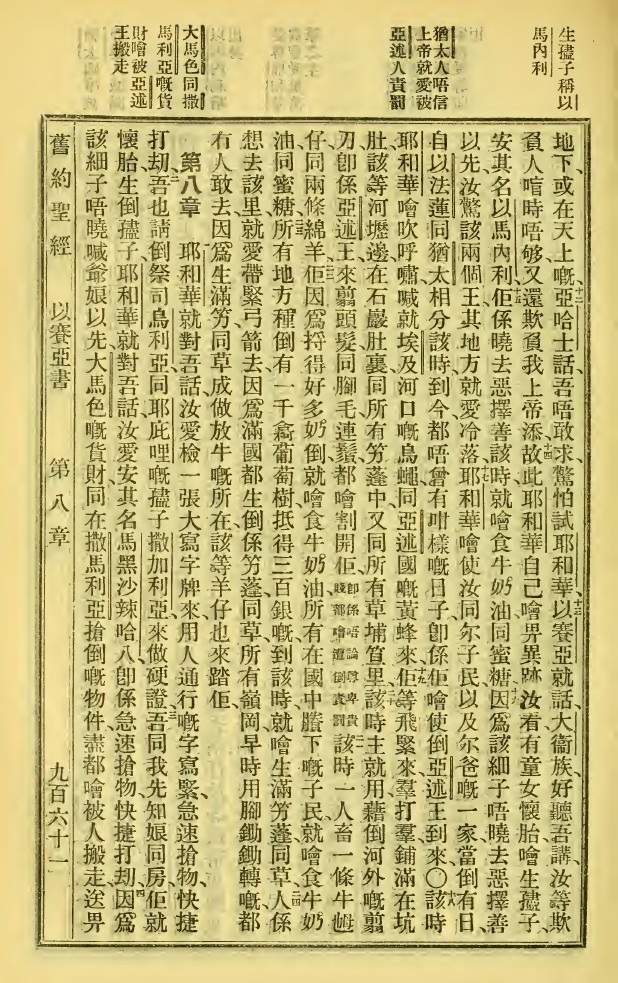 生孻子稱以
馬內利
猶太人唔信
上帝就愛被
亞述人責罰
大馬色同撒
馬利亞嘅貨
財噲被亞述
王搬走
地下或在天上嘅、十二亞哈士話吾唔敢求、驚怕試耶和華、十三以賽亞就話大衞族好聽吾講、汝等欺
負人喑時唔够、又還欺負我上帝添、十四故此耶和華自己噲畀異跡汝看、有童女懷胎噲生孻子、
安其名以馬內利、十五佢係曉去惡擇善該時、就噲食牛奶油同蜜糖、十六因爲該細子唔曉去惡擇善
以先、汝驚該兩個王、其地方就愛冷落、十七耶和華噲使汝同尔子民、以及尔爸嘅一家、當倒有日、
自以法蓮同猶太相分該時到今、都唔曾有咁樣嘅日子、卽係佢噲使倒亞述王到來〇十八該時
耶和華噲吹呼嘯、喊就埃及河口嘅烏蠅、同亞述國嘅黃蜂來、十九佢等飛緊來、羣打羣鋪滿在坑
肚該等河壢邊、在石巖肚裏、同所有竻蓬中、又同所有草埔𥴊里、二十該時主就用藉倒河外嘅翦
刀、卽係亞述王、來翦頭髮同腳毛、連鬚都噲割開佢、卽係唔論尊卑貴賤都噲遭倒責罰二一該時一人畜一條牛𡜵
仔同兩條綿羊、二二佢因爲挼得好多奶倒、就噲食牛奶油、所有在國中賸下嘅子民、就噲食牛奶
油同蜜糖、二三所有地方種倒有一千蔸葡萄樹、抵得三百銀嘅、到該時就噲生滿竻蓬同草、二四人係
想去該里、就愛帶緊弓箭去、因爲滿國都生倒係竻蓬同草、二五所有嶺岡早時用腳鋤鋤轉嘅、都
冇人敢去、因爲生滿竻同草、成做放牛嘅所在、該等羊仔也來踏佢、
第八章 耶和華就對吾話、汝愛檢一張大寫字牌來、用人通行嘅字寫緊、急速搶物快捷
打刼、二吾也請倒祭司烏利亞、同耶庇哩嘅孻子撒加利亞、來做硬證、三吾同我先知娘同房、佢就
懷胎生倒孻子、耶和華就對吾話、汝愛安其名馬黑沙辣哈八、卽係急速搶物快捷打刼、四因爲
該細子唔曉喊爺娘以先、大馬色嘅貨財、同在撒馬利亞搶倒嘅物件、盡都噲被人搬走、送畀
舊約聖經 以賽亞書 第八章 九百六十一